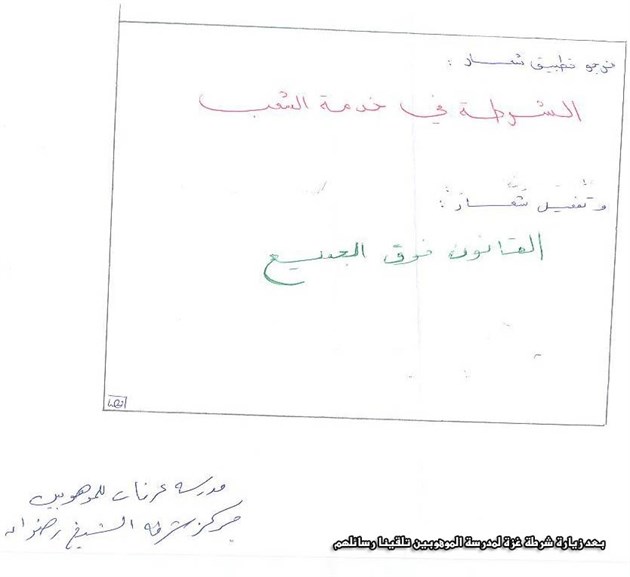 نرجو تطبيق شعار :
الشرطة في خدمة الشعب
وتفعيل شعار :
القانون فوق الجميع
انتهى
مدرسة عرفات للموهوبين
مركز شرطة الشيخ رضوان
بعد زيارة شرطة غزة لمدرسة الموهوبين تلقينا رسائلهم